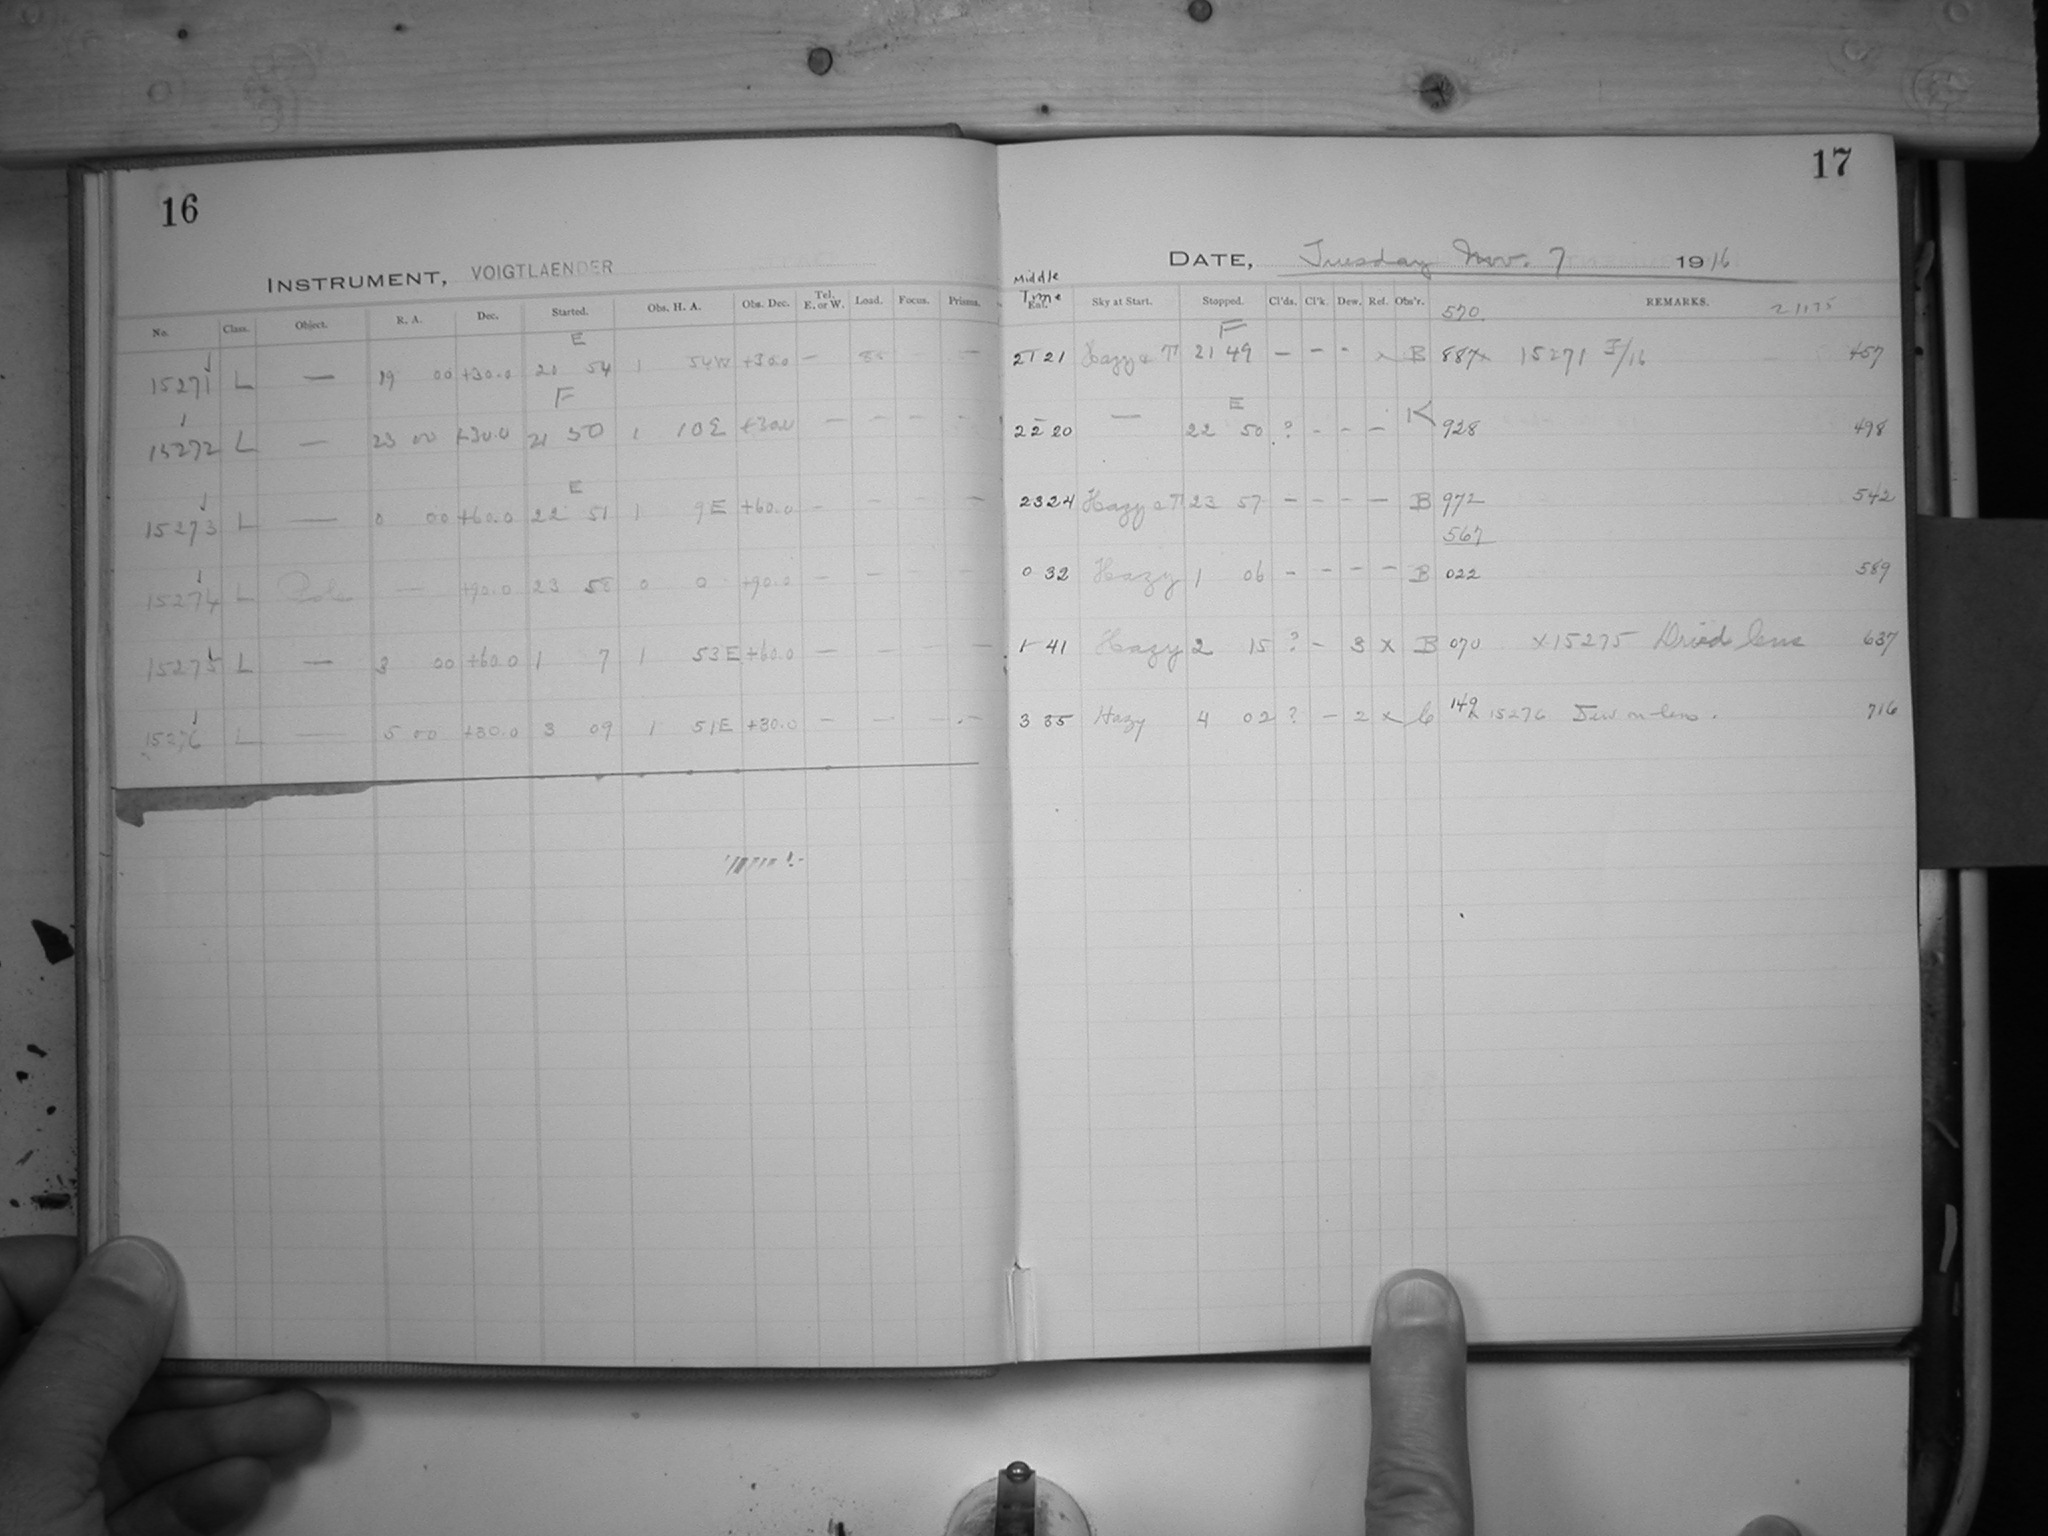 16
INSTRUMENT, VOIGTLAENDER
No. Class. Object. R. A. Dec. Started. Obs. H. A. Obs. Dec. Tel. E. or W. Load. Focus. Prisms.
E
15271 L — 19 00 +30.0 20 54 1 54W +30.0 — —
F
15272 L — 23 00 +30.0 21 50 1 10E +30.0 — — — —
E
15273 L — 0 00 +60.0 22 51 1 9E +60.0 — — — —
15274 L Pole — +90.0 23 58 0 0 +90.0 — — — —
15275 L — 3 00 +60.0 1 7 1 53E +60.0 — — — —
15276 L — 5 00 +30.0 3 09 1 51E +30.0 — — — —
17
DATE, Tuesday Nov. 7 1916
Middle
Time
Sky at Start. Stopped. Cl'ds. Cl'k. Dew. Ref. Obs'r. REMARKS.
570 21175
F
21 21 Hazy 21 49 — — — x B 887x 15271 I/16 457
E
22 20 — 22 50 ? — — — K 928 498
23 24 Hazy 23 57 — — — — B 972 542
567
0 32 Hazy 1 06 — — — — B 022 589
1 41 Hazy 2 15 ? — 3 x B 070 x15275 Dried lens 637
3 35 Hazy 4 02 ? — 2 x 149 15276 Dew on lens. 716